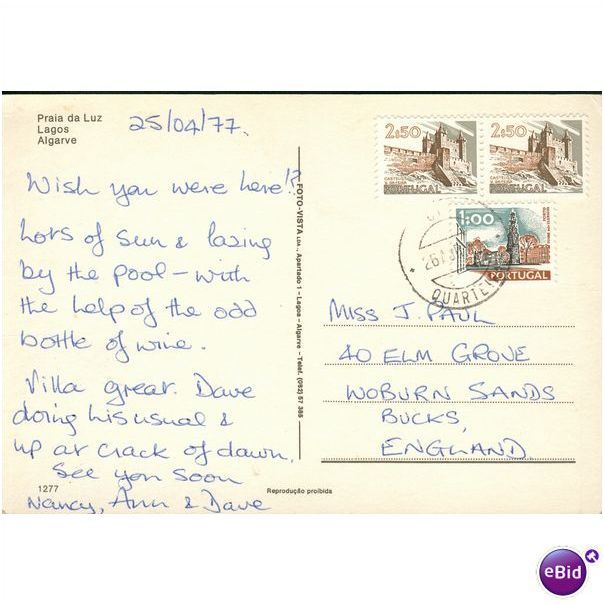 Praia da Luz
Lagos
Algarve
25/04/77.
Wish you were here!?
Lots of sun & lazing
by the pool - with
the help of the odd
bottle of wine.
Villa great. Dave
doing his usual &
up at crack of dawn.
See you soon
Nancy, Ann & Dave
1277
FOTO-VISTA LDA., Apartado 1 - Lagoa - Algarve - Telef. (082) 57 385
Reprodução proibida
2$50
PORTUGAL
2$50
PORTUGAL
1$00
PORTUGAL
QUARTEI
MISS J. PAUL
40 ELM GROVE
WOBURN SANDS
BUCKS,
ENGLAND.
eBid